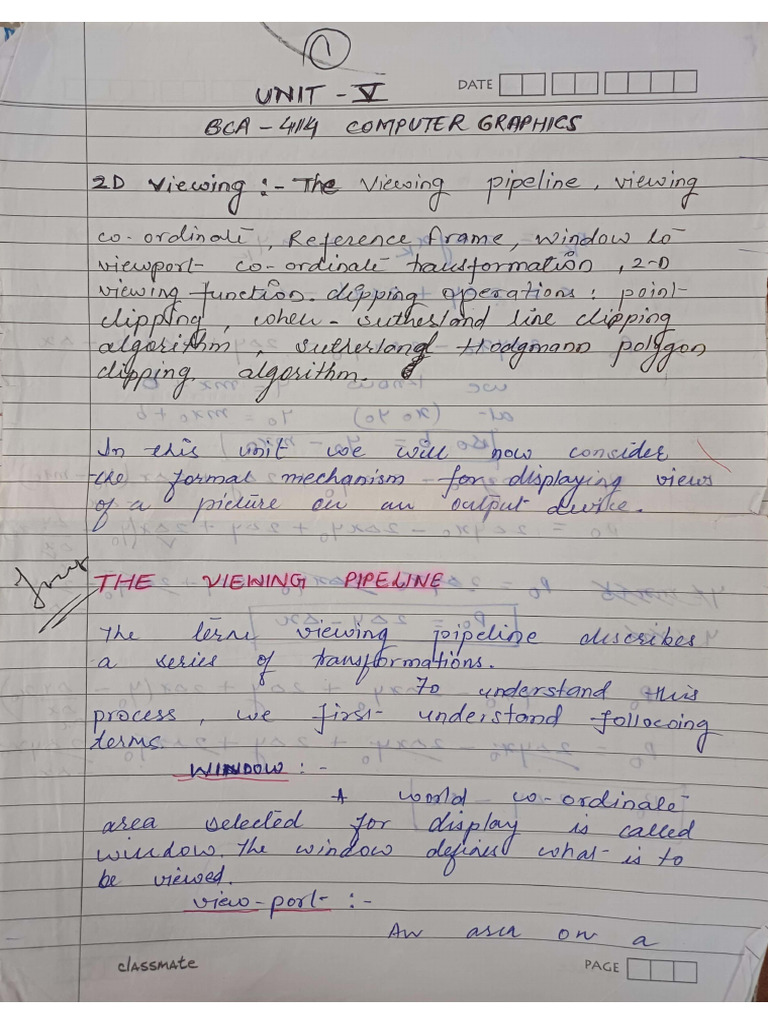 1
UNIT - V
DATE
BCA - 414 COMPUTER GRAPHICS
2D Viewing :- The Viewing pipeline, viewing
co-ordinate, Reference frame, window to
viewport co-ordinate transformation, 2-D
viewing function. clipping operations: point
clipping, cohen-sutherland line clipping
algorithm, sutherland Hodgmann polygon
clipping algorithm.
In this unit we will now consider
the formal mechanism for displaying views
of a picture on an output device.
THE VIEWING PIPELINE
The term viewing pipeline describes
a series of transformations.
To understand this
process, we first understand following
terms.
WINDOW :-
A world co-ordinate
area selected for display is called
window. the window defines what is to
be viewed.
view-port :-
An area on a
classmate
PAGE